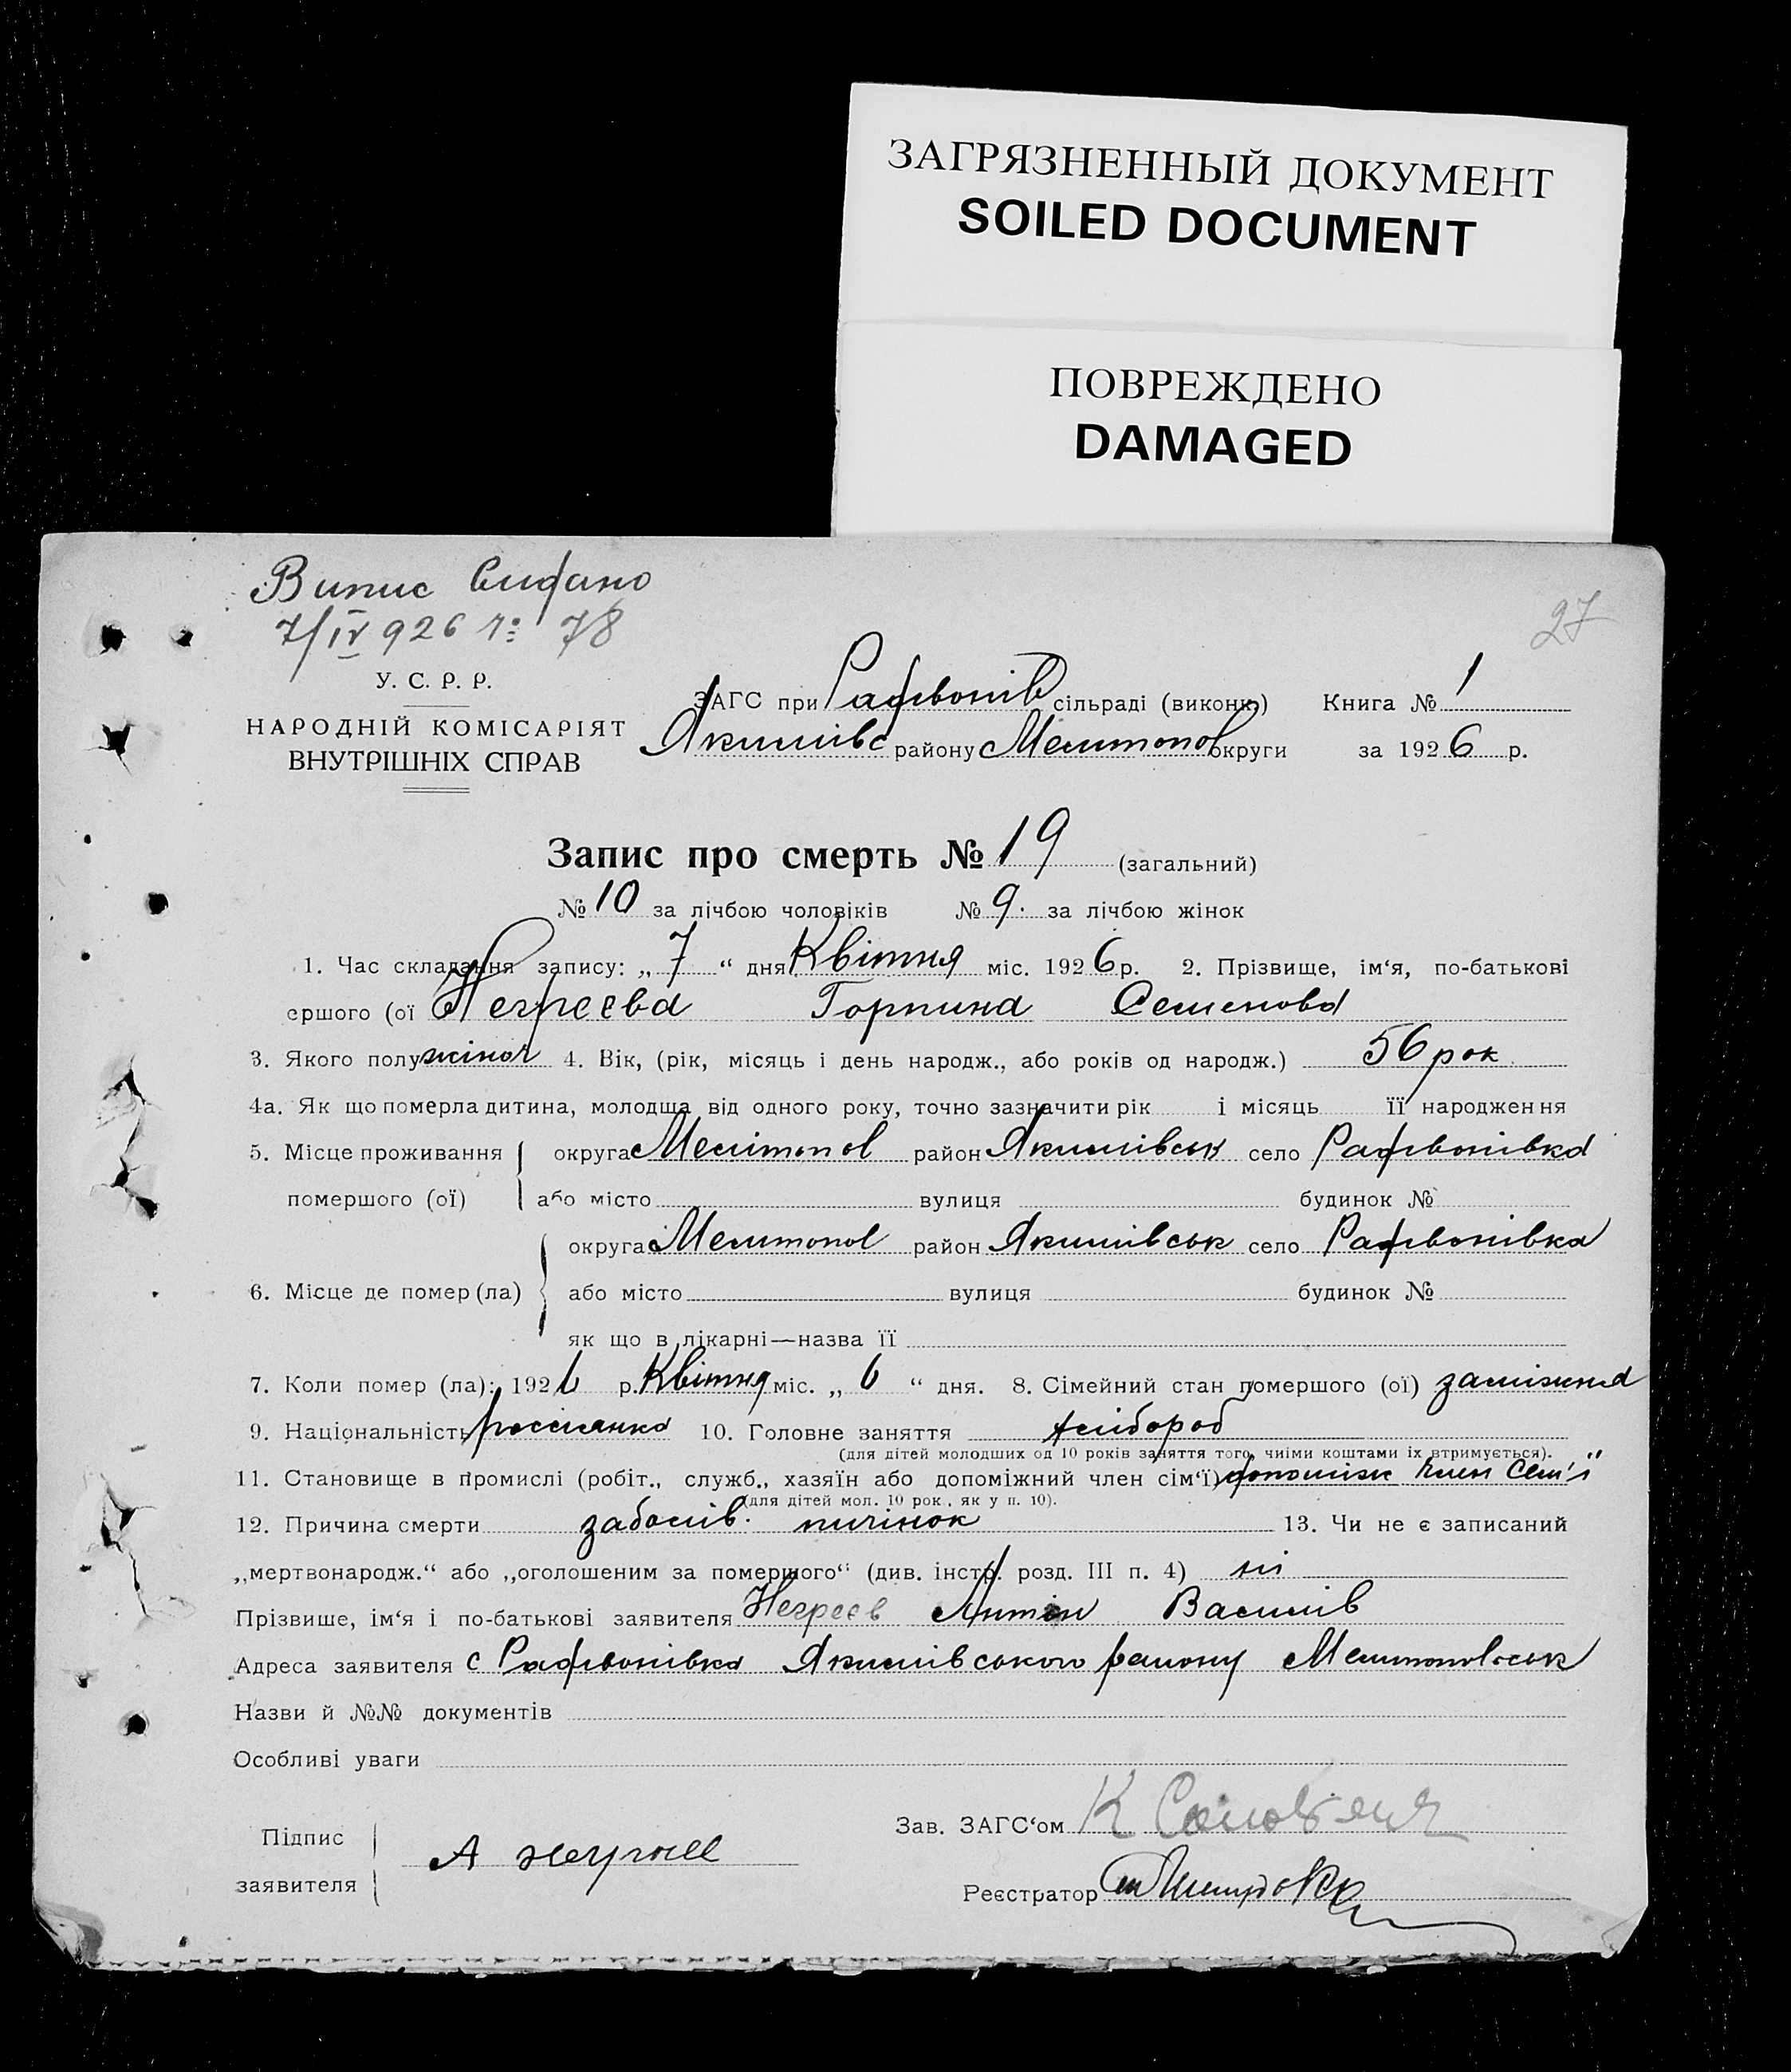 ЗАГРЯЗНЕННЫЙ ДОКУМЕНТ
SOILED DOCUMENT
ПОВРЕЖДЕНО
DAMAGED
Випис видано
7/IV 926 78
27
У. С. Р. Р.
НАРОДНІЙ КОМІСАРІЯТ
ВНУТРІШНІХ СПРАВ
ЗАГС при сільраді (виконк.) Книга № 1
Якимівс району Мелитопол округи за 1926 р.
Запис про смерть № 19 (загальний)
№ 10 за лічбою чоловіків № 9. за лічбою жінок
1. Час складання запису: „ 7 “ дня Квітня міс. 1926 р. 2. Прізвище, ім‘я, по-батькові
ершого (ої Негреєва Горпина Семенова
3. Якого полу жіноч 4. Вік, (рік, місяць і день народж., або років од народж.) 56 рок.
4а. Як що померла дитина, молодша від одного року, точно зазначити рік і місяць її народження
5. Місце проживання округа Мелітопол район Якимівськ село
помершого (ої) або місто вулиця будинок №
округа Мелитопол район Якимівськ село
6. Місце де помер (ла) або місто вулиця будинок №
як що в лікарні—назва її
7. Коли помер (ла): 1926 р. Квітня міс. „ 6 “ дня. 8. Сімейний стан помершого (ої) заміжня
9. Національність россіянка 10. Головне заняття хлібороб
(для дітей молодших од 10 років заняття того, чиїми коштами їх втримується).
11. Становище в промислі (робіт., служб., хазяїн або допоміжний член сім‘ї) допоміж член сем'ї
(для дітей мол. 10 рок., як у п. 10).
12. Причина смерти заболів. пичінок 13. Чи не є записаний
„мертвонародж.“ або „оголошеним за помершого“ (див. інстр. розд. III п. 4) ні
Прізвище, ім‘я і по-батькові заявителя Негреєв Антон Василів
Адреса заявителя с Якимівського району
Назви й №№ документів
Особливі уваги
Підпис
заявителя
А
Зав. ЗАГС‘ом К
Реєстратор